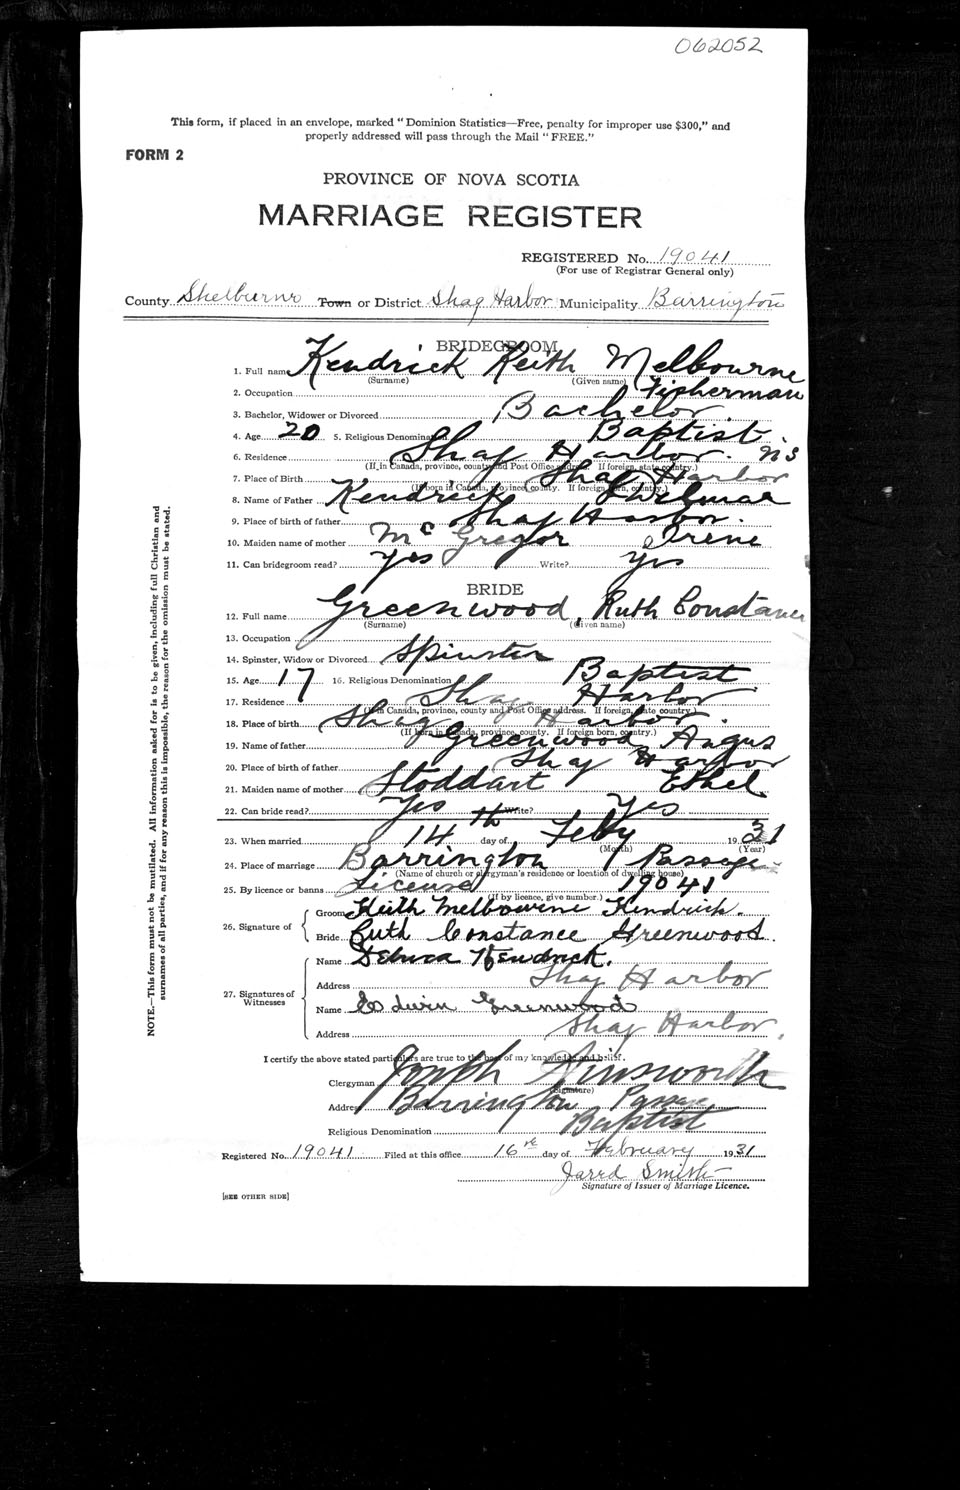 062052
This form, if placed in an envelope, marked "Dominion Statistics—Free, penalty for improper use $300," and
properly addressed will pass through the Mail "FREE."
FORM 2
PROVINCE OF NOVA SCOTIA
MARRIAGE REGISTER
REGISTERED No. 19041
(For use of Registrar General only)
County Shelburne Town or District Shag Harbor Municipality Barrington
BRIDEGROOM
1. Full name Kendrick Keith Melbourne
(Surname) (Given name)
2. Occupation Fisherman
3. Bachelor, Widower or Divorced Bachelor
4. Age 20 5. Religious Denomination Baptist
6. Residence Shag Harbor. N S
(If in Canada, province, county and Post Office address. If foreign, state country.)
7. Place of Birth Shag Harbor
(If born in Canada, province, county. If foreign born, country.)
8. Name of Father Kendrick
9. Place of birth of father Shag Harbor.
10. Maiden name of mother McGregor Irene
11. Can bridegroom read? Yes Write? Yes
BRIDE
12. Full name Greenwood, Ruth Constance
(Surname) (Given name)
13. Occupation
14. Spinster, Widow or Divorced Spinster
15. Age 17 16. Religious Denomination Baptist
17. Residence Shag Harbor
(If in Canada, province, county and Post Office address. If foreign, state country.)
18. Place of birth Shag Harbor.
(If born in Canada, province, county. If foreign born, country.)
19. Name of father Greenwood, Angus
20. Place of birth of father Shag Harbor
21. Maiden name of mother Stoddart Ethel
22. Can bride read? Yes Write? Yes
23. When married 14th day of Feby 1931
(Month) (Year)
24. Place of marriage Barrington Passage
(Name of church or clergyman's residence or location of dwelling house)
25. By licence or banns License 19041
(If by licence, give number.)
26. Signature of
Groom Keith Melbourne Kendrick.
Bride Ruth Constance Greenwood.
27. Signatures of Witnesses
Name Kendrick.
Address Shag Harbor
Name Edwin Greenwood
Address Shag Harbor.
I certify the above stated particulars are true to the best of my knowledge and belief.
Clergyman Joseph Ainsworth
(Signature)
Address Barrington Passage
Religious Denomination Baptist
Registered No. 19041 Filed at this office 16th day of February 1931
Jared Smith
Signature of Issuer of Marriage Licence.
[SEE OTHER SIDE]
NOTE.—This form must not be mutilated. All information asked for is to be given, including full Christian and
surnames of all parties, and if for any reason this is impossible, the reason for the omission must be stated.